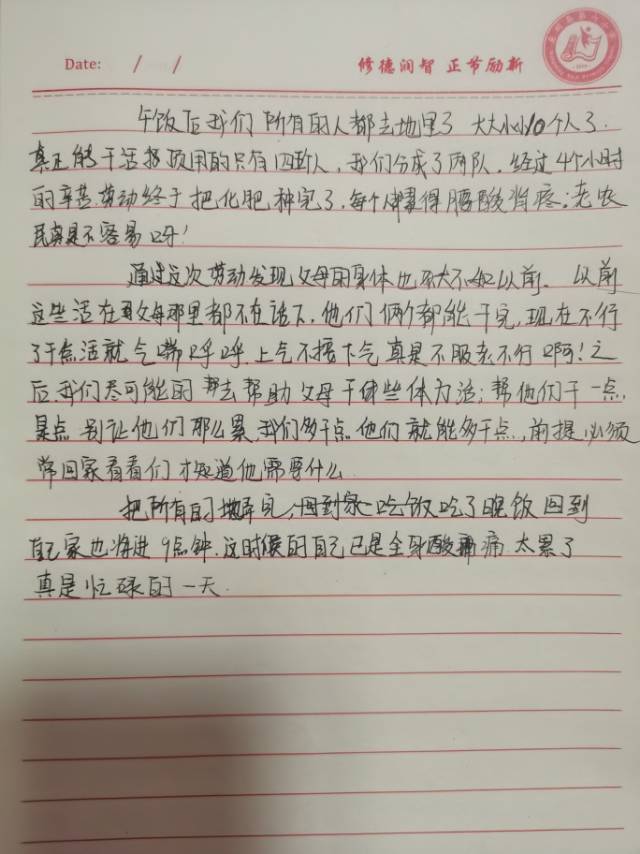 Date: / /
修德润智 正节励新
午饭后我们所有的人都去地里了 大大小小10个人了.
真正能干活指顶用的只有四五个人, 我们分成了两队. 经过4个小时
的辛苦劳动终于把化肥种完了. 每个人累得腰酸背疼; 老农
民真是不容易呀!
通过这次劳动发现父母的身体也不大不如以前. 以前
这些活在父母那里都不在话下, 他们俩个都能干完, 现在不行
了干点活就气喘呼呼 上气不接下气 真是不服老不行啊! 之
后我们尽可能的帮助父母干些体力活; 帮他们干一点
是点 别让他们那么累, 我们多干点 他们就能少干点, 前提必须
常回家看看们才知道他需要什么
把所有的地弄完, 回到家 吃饭吃了晚饭 回到
自己家也将进9点钟. 这时候的自己已是全身酸痛 太累了
真是忙碌的一天.